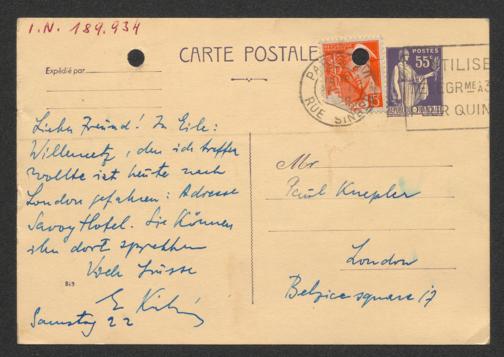 I.N. 189.934
CARTE POSTALE
Expédié par
POSTES
55c
15
RUE SINGER
UTILISE
QUIN
Lieber Freund! In Eile:
Willemetz, den ich treffen
wollte ist heute nach
London gefahren: Adresse
Savoy Hotel. Sie können
ihn dort sprechen
Viele Grüsse
Samstag 22
Mr
Paul Knepler
London
Belgice square 17